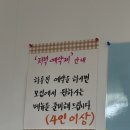 '지역 예약제' 안내
하루전 예약을 하시면
모임에서 원하시는
메뉴를 준비해 드립니다
(4인 이상)